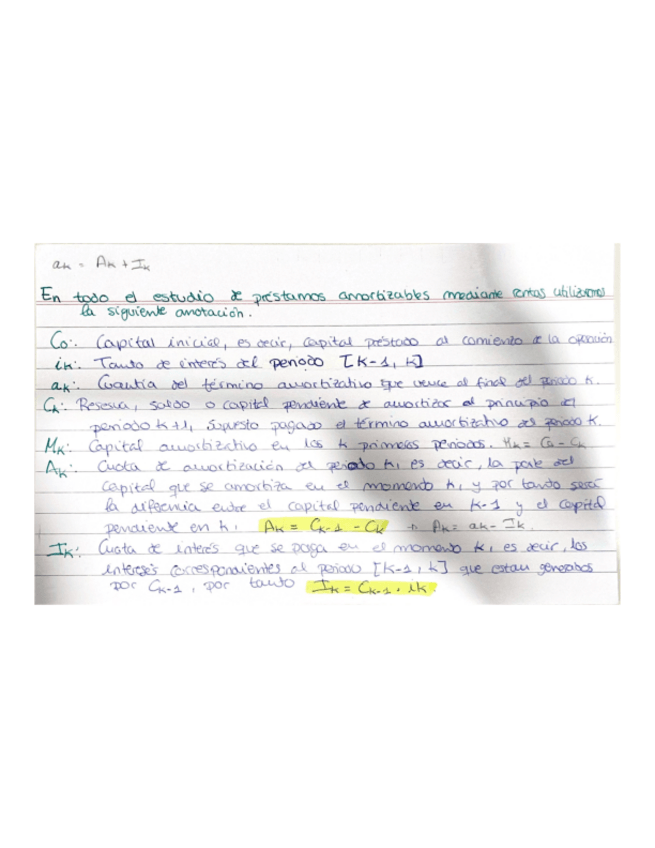 ak = Ak + Ik
En todo el estudio de préstamos amortizables mediante rentas utilizamos
la siguiente anotación.
Co: Capital inicial, es decir, capital prestado al comienzo de la operación
ik: Tanto de interés del periodo [K-1, K]
ak: Cuantía del término amortizativo que vence al final del periodo K.
Ck: Reserva, saldo o capital pendiente de amortizar al principio del
periodo K+1, supuesto pagado el término amortizativo del periodo K.
Mk: Capital amortizativo en los k primeros periodos. Mk = Co - Ck
Ak: Cuota de amortización del periodo K, es decir, la parte del
capital que se amortiza en el momento K, y por tanto será
la diferencia entre el capital pendiente en K-1 y el capital
pendiente en K. Ak = Ck-1 - Ck → Ak = ak - Ik.
Ik: Cuota de interés que se paga en el momento K, es decir, los
intereses correspondientes al periodo [K-1, K] que estan generados
por Ck-1, por tanto Ik = Ck-1 · ik.